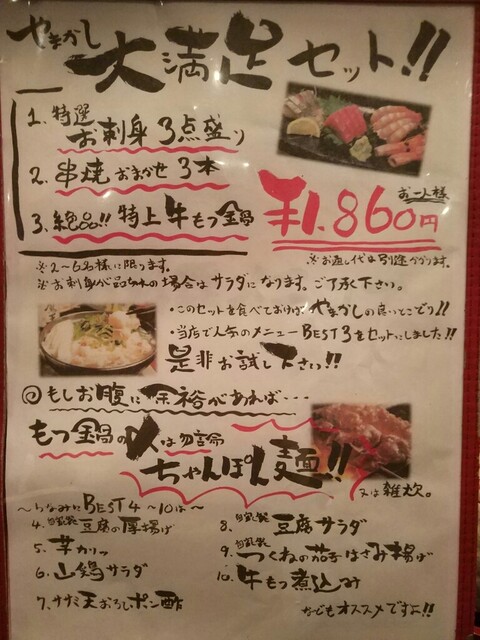 やまかし 大満足セット!!
1. 特選 お刺身3点盛り
2. 串焼おまかせ3本
3. 絶品!! 特上牛もつ鍋
お一人様
¥1,860円
※お通し代は別途かかります。
※2~6名様に限ります。
※お刺身が品切れの場合はサラダになります。ご了承下さい。
・このセットを食べておけば やまかしの良いとこどり!!
・当店で人気のメニューBEST3をセットにしました!!
是非お試し下さいっ!!
◎もしお腹に余裕があれば・・・
もつ鍋の〆は勿論
ちゃんぽん麺!!
又は雑炊。
~ちなみにBEST4~10は~
4. 自家製 豆腐の厚揚げ
5. 芋カリッ
6. 山鶏サラダ
7. ササミ天おろしポン酢
8. 自家製 豆腐サラダ
9. 自家製 つくねの茄子はさみ揚げ
10. 牛もつ煮込み
などもオススメですよ!!